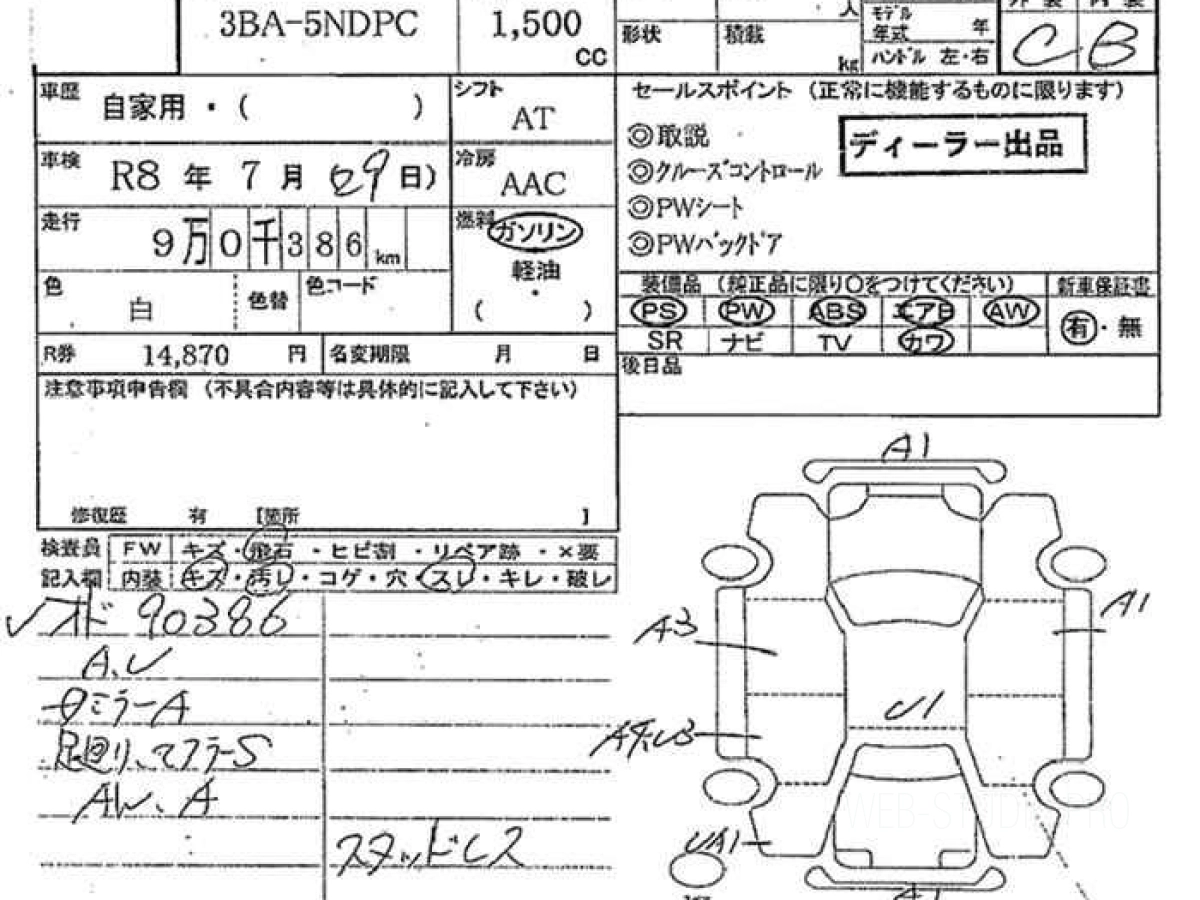 3BA-5NDPC
1,500
CC
人
形状
積載
kg
モデル
年式
年
ハンドル 左・右
外装
内装
C
B
車歴
自家用・( )
シフト
AT
車検
R8 年 7 月 (29日)
冷房
AAC
走行
9万0千386km
燃料
ガソリン
軽油
( )
色
白
色替
色コード
R券
14,870 円
名変期限 月 日
注意事項申告欄 (不具合内容等は具体的に記入して下さい)
修復歴 有 [箇所 ]
セールスポイント (正常に機能するものに限ります)
◎取説
ディーラー出品
◎クルーズコントロール
◎PWシート
◎PWバックドア
装備品 (純正品に限り○をつけてください)
新車保証書
PS PW ABS エアB AW
有・無
SR ナビ TV カワ
後日品
検査員
記入欄
FW キズ・飛石・ヒビ割・リペア跡・×要
内装 キズ・汚レ・コゲ・穴・スレ・キレ・破レ
オド 90386
A、U
ミラーA
足回リ、マフラーS
AW、A
スタッドレス
A1
A3
A1
U1
UA1
A1
WEB-STUDIO.PRO